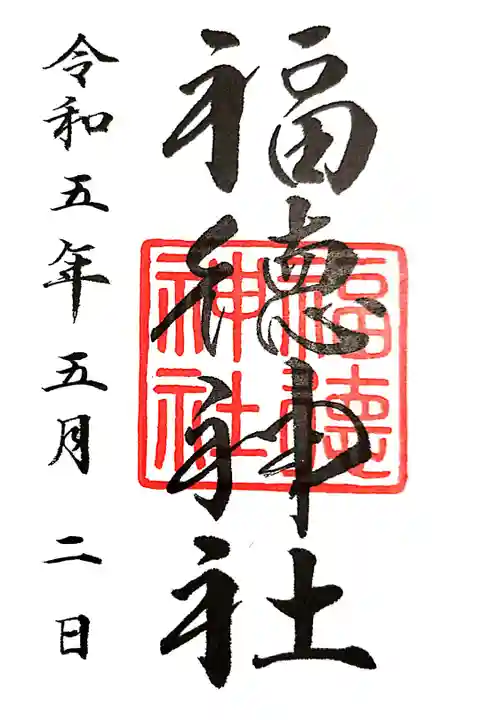 福徳神社
福徳
神社
令和五年五月二日